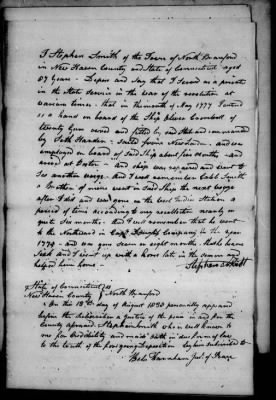 I Stephen Smith of the Town of North Branford
in New Haven County and State of Connecticut aged
87 years - Depose and Say that I Served as a private
in the State Service in the war of the revolution at
various times - that in thirteenth May 1777 I entered
as a hand on board of the Ship
twenty Gun owned and fitted by and commanded
by Seth Harden - Sailed from New Haven and was
employed on board of Said Ship about five Months - and
at Boston - and Ship was repaired and went to
Sea another voyage - And I well remember Caleb Smith
a Brother of mine went in Said Ship the next voyage
after I did and was gone on the West Indies Station a
period of time according to my recollection nearly or
quite Six months - And I well remember that he went
to the Northward in Company in the year
1779 and was gone Seven or eight months - that he was
Sick and I went up with a horse late in the season and
helped him home -
Stephen Smith
State of Connecticut
New Haven County North Branford
On the 13th day of August 1830 personally appeared
before the Subscriber a Justice of the peace in and for the
County aforesaid Stephen Smith who is well known to
me for Credibility and made oath in due form of law
to the truth of the foregoing deposition by him Subscribed to
Farnham Jus. of Peace